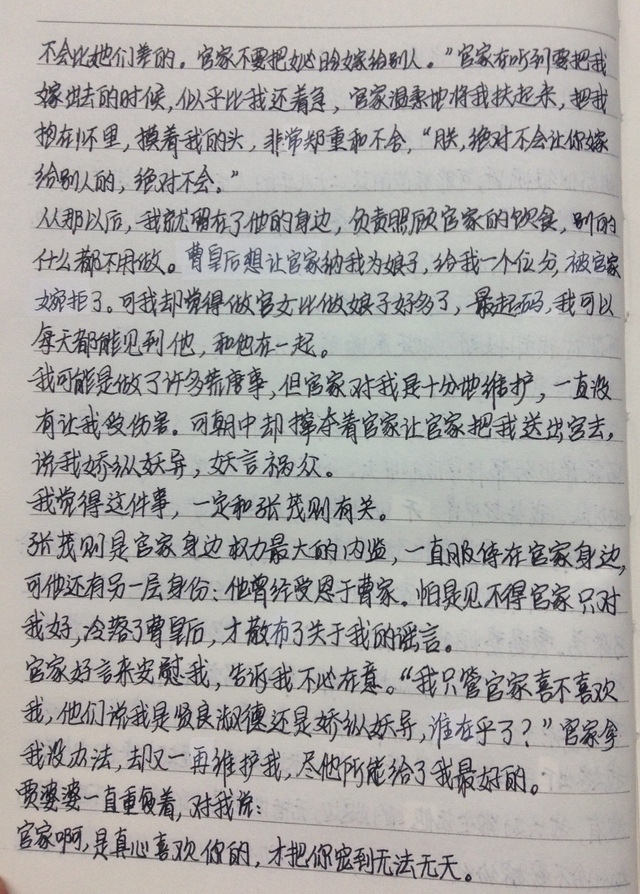 不会比她们差的。官家不要把妼晗嫁给别人。”官家在听到要把我
嫁出去的时候，似乎比我还着急，官家温柔地将我扶起来，把我
抱在怀里，摸着我的头，非常郑重和不舍，“朕，绝对不会让你嫁
给别人的，绝对不会。”
从那以后，我就留在了他的身边，负责照顾官家的饮食，别的
什么都不用做。曹皇后想让官家纳我为娘子，给我一个位分，被官家
婉拒了。可我却觉得做宫女比做娘子好多了，最起码，我可以
每天都能见到他，和他在一起。
我可能是做了许多荒唐事，但官家对我是十分地维护，一直没
有让我受伤害。可朝中却撺夺着官家让官家把我送出宫去，
说我娇纵妖异，妖言祸众。
我觉得这件事，一定和张茂则有关。
张茂则是官家身边权力最大的内监，一直服侍在官家身边，
可他还有另一层身份：他曾经受恩于曹家。怕是见不得官家只对
我好，冷落了曹皇后，才散布了关于我的谣言。
官家好言来安慰我，告诉我不必在意。“我只管官家喜不喜欢
我，他们说我是贤良淑德还是娇纵妖异，谁在乎了？”官家拿
我没办法，却又一再维护我，尽他所能给了我最好的。
贾婆婆一直重复着，对我说：
官家啊，是真心喜欢你的，才把你宠到无法无天。